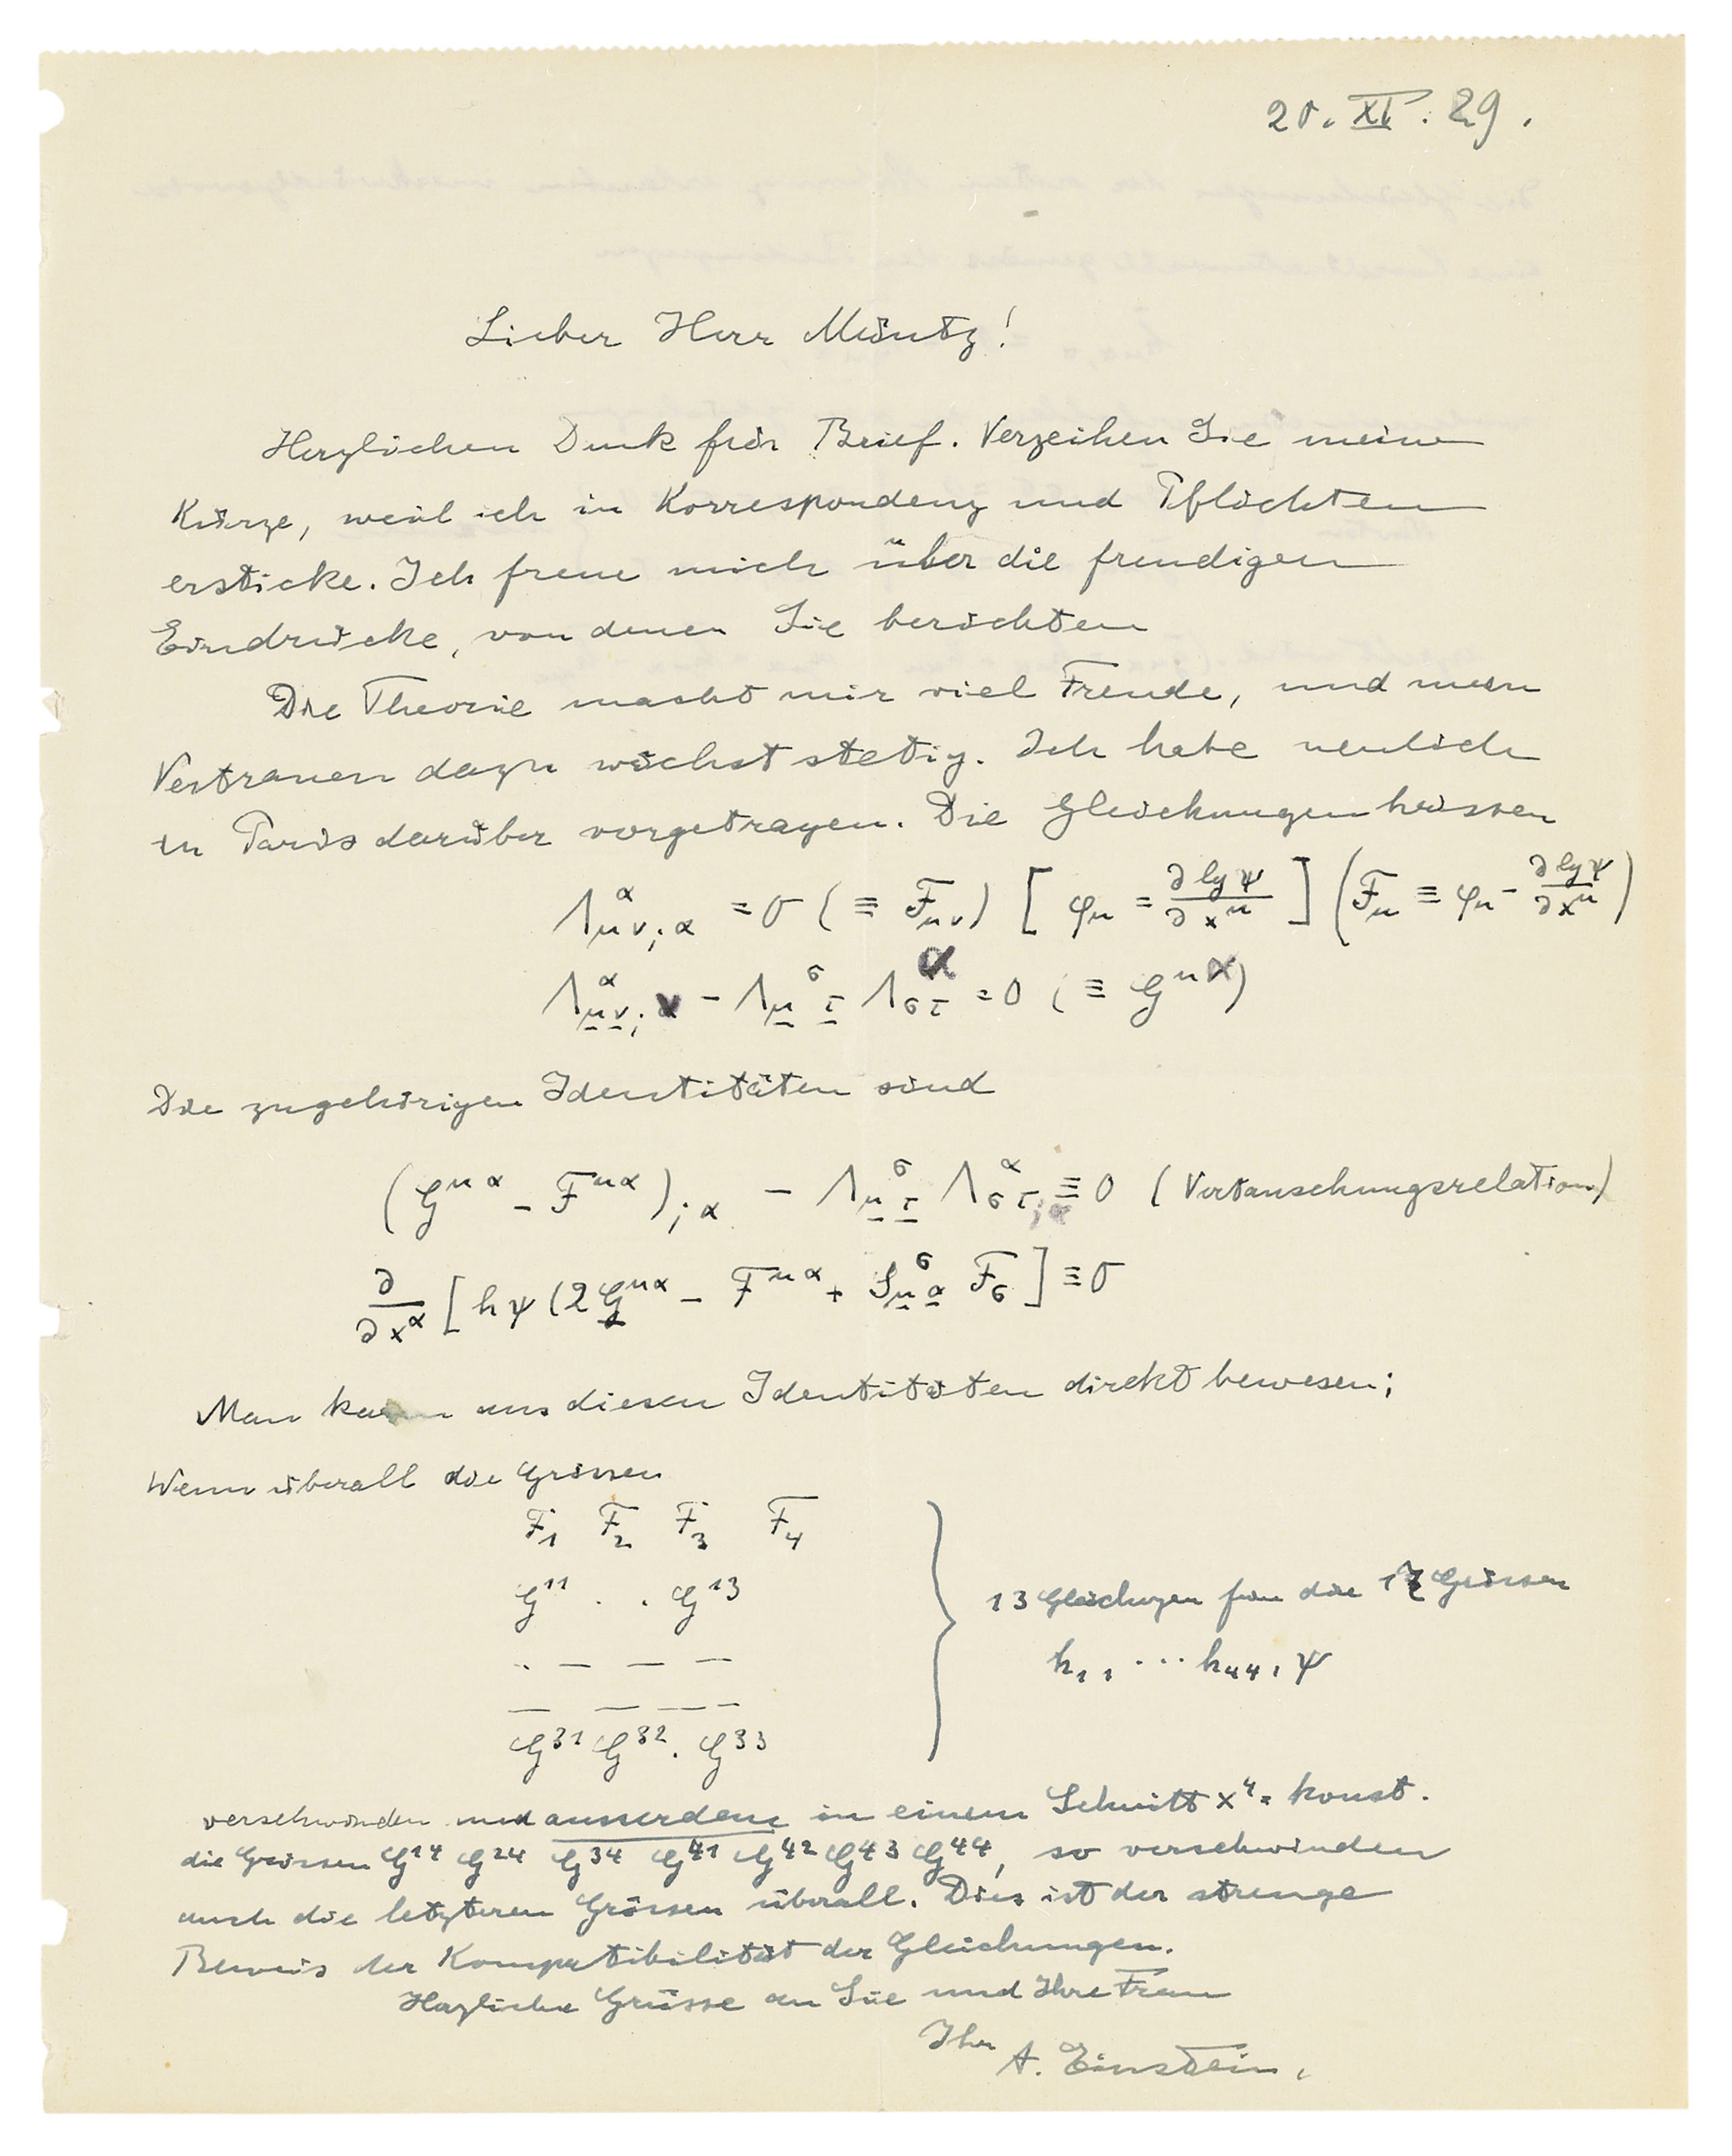 20. XI. 29.
Lieber Herr Müntz!
Herzlichen Dank für Brief. Verzeihen Sie meine
Kürze, weil ich in Korrespondenz und Pflichten
ersticke. Ich freue mich über die freudigen
Eindrücke, von denen Sie berichten
Die Theorie macht mir viel Freude, und mein
Vertrauen dazu wächst stetig. Ich habe neulich
in Paris darüber vorgetragen. Die Gleichungen heissen
Λ_{μν;α}^{α} = 0 (≡ F_{μν}) [φ_μ = ∂ lg ψ / ∂x^μ] (F_μ ≡ φ_μ − ∂ lg ψ / ∂x^μ)
Λ_{μν;ν}^{α} − Λ_{μτ}^{σ} Λ_{στ}^{α} = 0 (≡ G^{μα})
Die zugehörigen Identitäten sind
(G^{μα} − F^{μα})_{;α} − Λ_{μτ}^{σ} Λ_{στ;α}^{α} ≡ 0 (Vertauschungsrelation)
∂/∂x^α [hψ(2G^{μα} − F^{μα} + S_{μα}^{σ} F_σ] ≡ 0
Man kann aus diesen Identitäten direkt bewesen;
Wenn überall die Grössen
F_1 F_2 F_3 F_4
G^{11} . . G^{13}
.. — — —
— — — —
G^{31} G^{32} . G^{33}
13 Gleichugen für die 17 Grössen
h_{11} ... h_{44}, ψ
verschwinden und ausserdem in einem Schnitt x^4 = konst.
die Grössen G^{14} G^{24} G^{34} G^{41} G^{42} G^{43} G^{44}, so verschwinden
auch die letzteren Grössen überall. Dies ist der strenge
Beweis der Kompatibilität der Gleichungen.
Herzliche Grüsse an Sie und Ihre Frau
Ihr
A. Einstein.